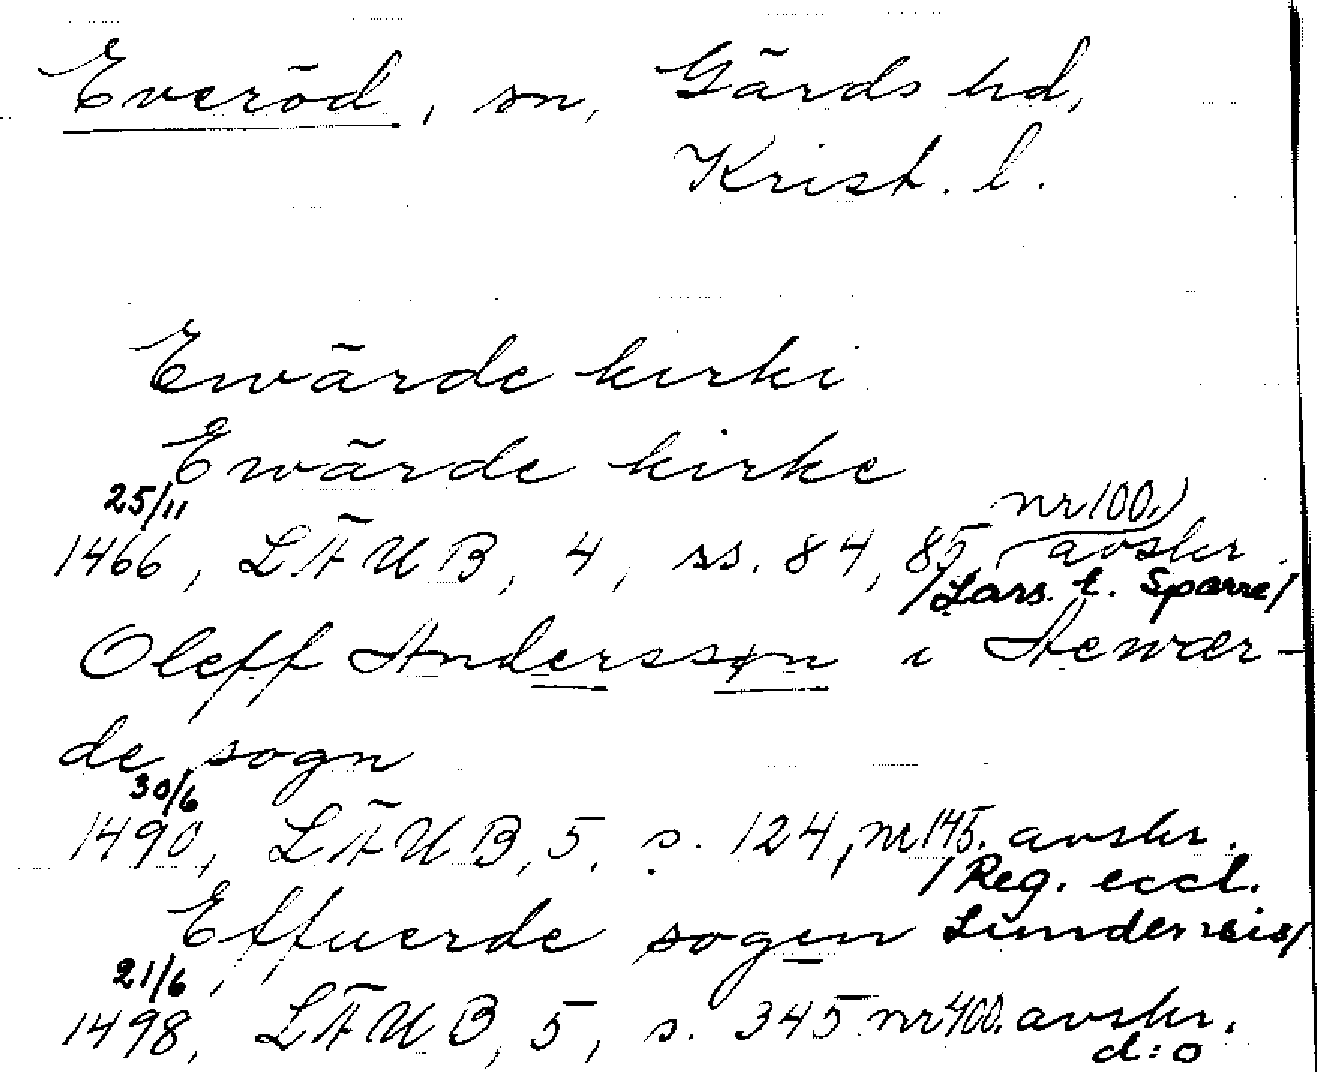 Everöd, sn, Gärds hd,
Krist. l.
Ewärde kirki
Ewärde kirke
25/11 nr 100.)
1466, LÄUB, 4, ss. 84, 85, avskr.
/Lars. t. Sparre/
Oleff Anderssøn i Aewær-
de sogn
30/6
1490, LÄUB, 5, s. 124, nr 145. avskr.
/Reg. eccl.
Effuerde sogen Lundensis/
21/6
1498, LÄUB, 5, s. 345 nr 400. avskr.
d:o